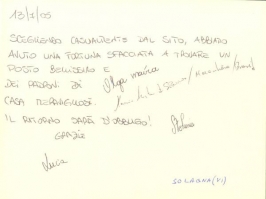 13/I/05
SCEGLIENDO CASUALMENTE DAL SITO, ABBIAMO
AVUTO UNA FORTUNA SFACCIATA A TROVARE UN
POSTO BELLISSIMO E
DEI PADRONI DI
CASA MERAVIGLIOSI.
IL RITORNO SARÀ D'OBBLIGO!
GRAZIE
Stefano
Luca
SOLAGNA (VI)